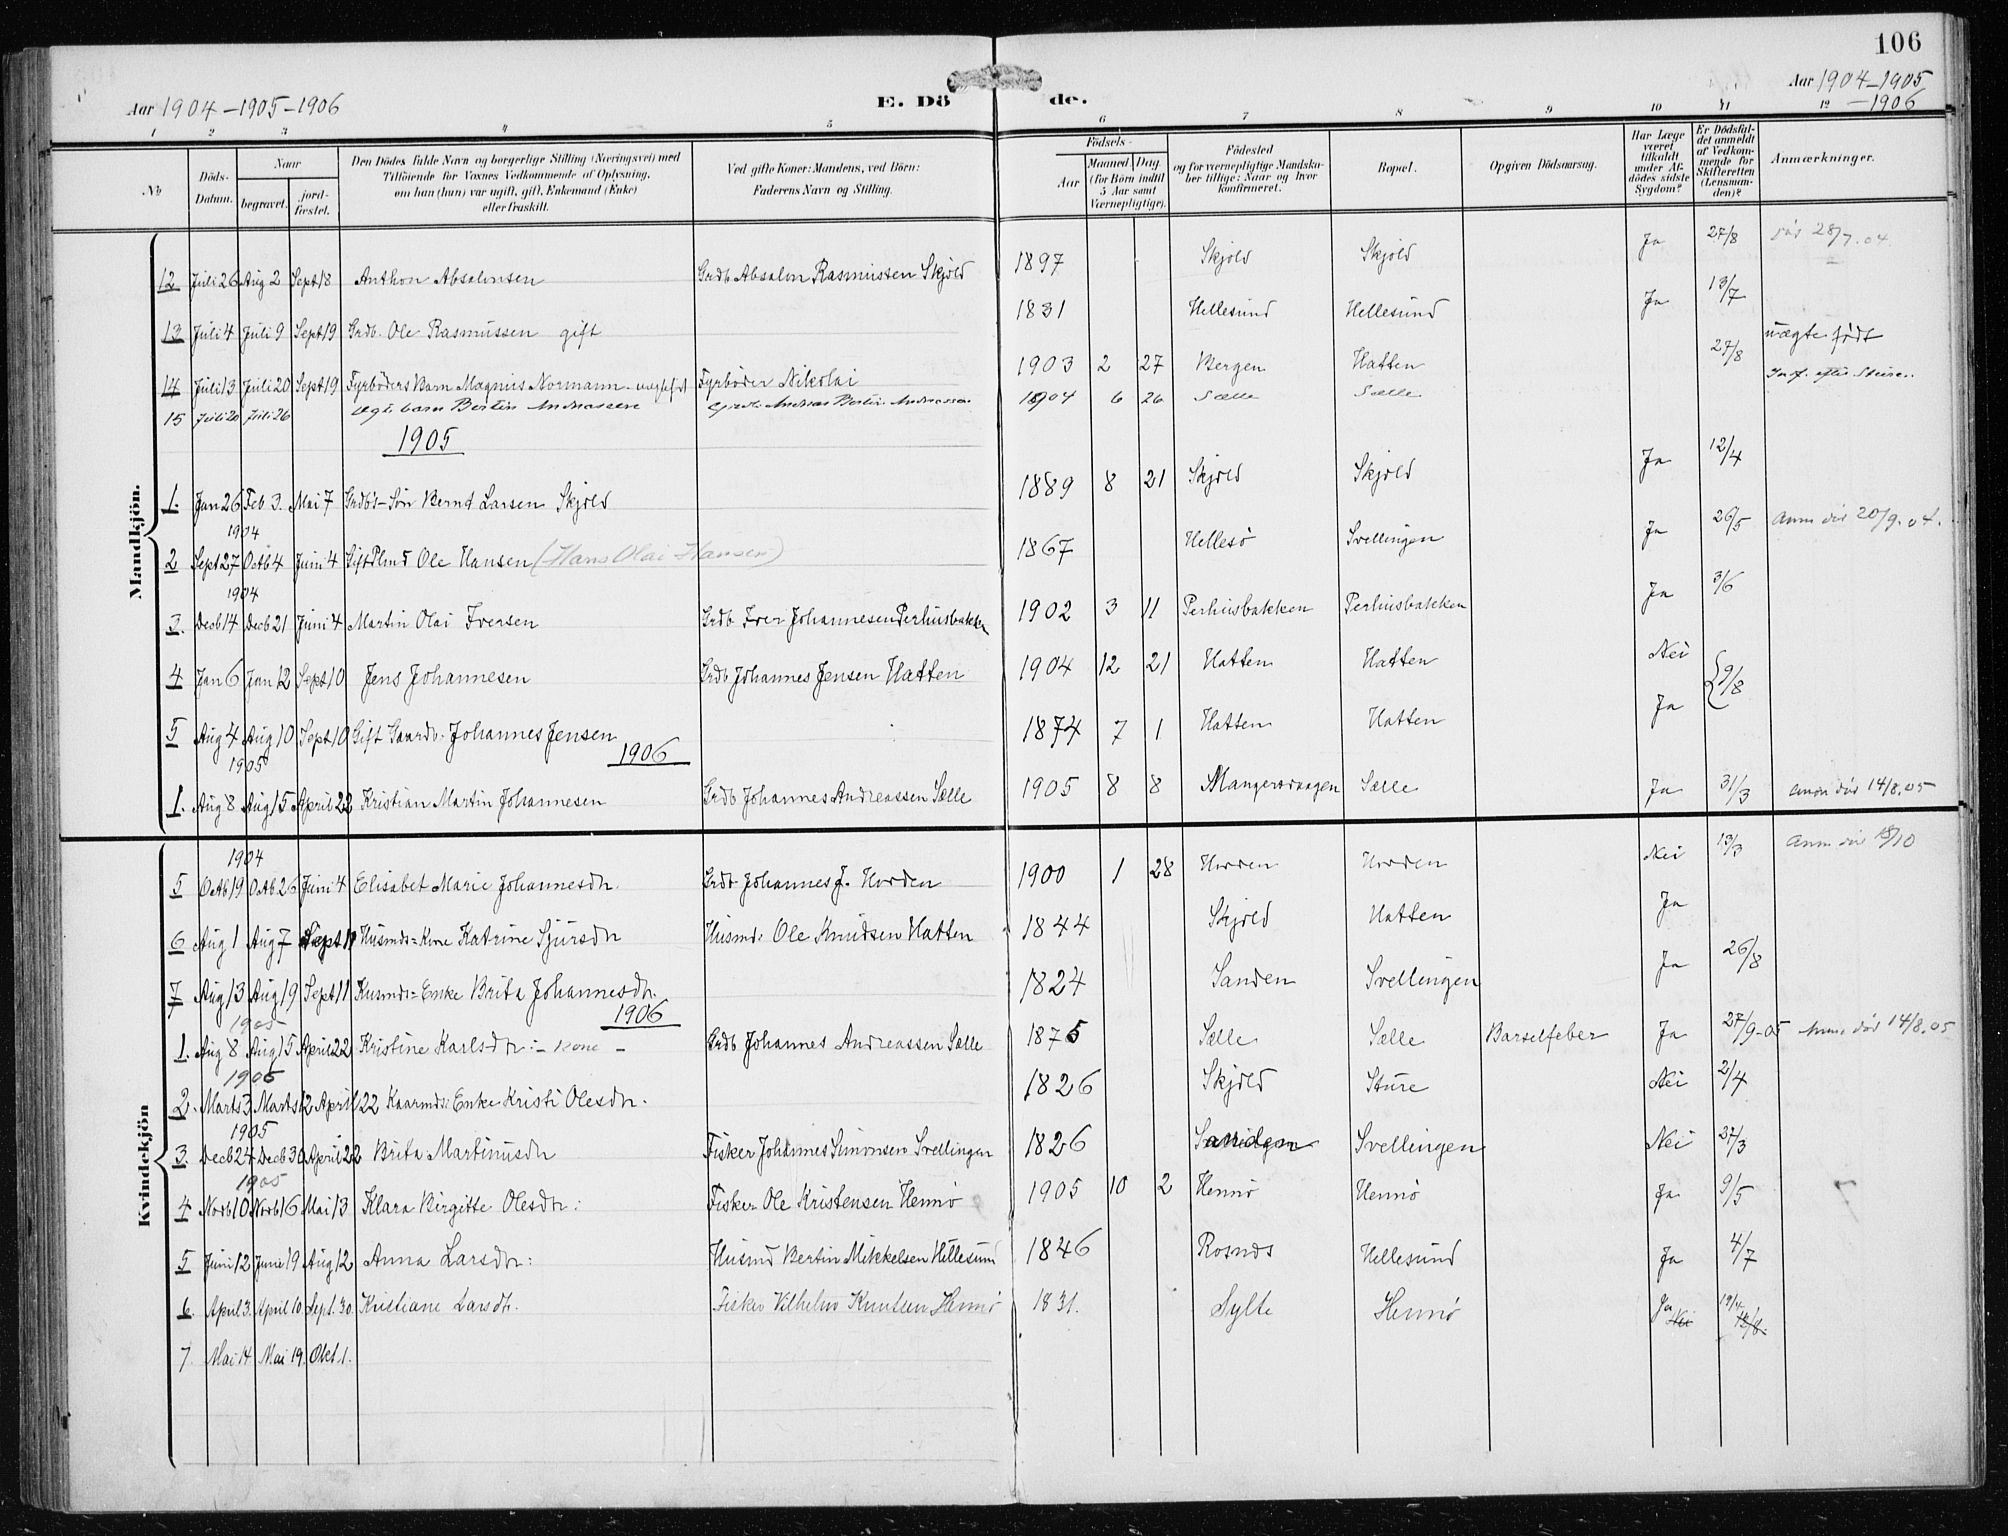 106
Aar 1904-1905-1906
E. Dö de.
Aar 1904-1905
-1906
1 2 3 4 5 6 7 8 9 10 11 12
No
Döds-Datum.
Naar
begravet.
jord-fæstet.
Den Dödes fulde Navn og borgerlige Stilling (Næringsvei) med Tilföiende for Voxnes Vedkommende af Oplysning, om han (hun) var ugift, gift, Enkemand (Enke) eller fraskilt.
Ved gifte Koner: Mandens, ved Börn: Faderens Navn og Stilling.
Födsels-
Aar
Maaned. Dag. (for Börn indtil 5 Aar samt Værnepligtige).
Födested og for værnepligtige Mandskaber tillige: Naar og hvor konfirmeret.
Bopæl.
Opgiven Dödsaarsag.
Har Læge været tilkaldt under Afdödes sidste Sygdom?
Er Dödsfaldet anmeldt at Vedkommende for Skifteretten (Lensmanden)?
Anmærkninger.
Mandkjön.
12 Juli 26 Aug 2 Sept 18 Anthon Absalonsen Grdb Absalon Rasmussen Skjold 1897 Skjold Skjold Ja 27/8 28/7.04
13 Juli 4 Juli 9 Sept 19 Grdb. Ole Rasmussen gift 1831 Hellesund Hellesund Ja 13/7
14 Juli 13 Juli 20 Sept 19 Fyrböders Barn Magnus Normann Fyrböder Nikolai 1903 2 27 Bergen Hatten 27/8 uægte født
15 Juli 20 Juli 26 Ægt. barn Bertin Andreassen Grdb. Andreas Bertin Andreassen 1904 6 26 Sælle Sælle
1905
1. Jan 26 Feb 3. Mai 7 Grdb's-Sön Bernt Larsen Skjold 1889 8 21 Skjold Skjold Ja 12/4
1904
2 Sept 27 Octb 4 Juni 4 Gift Plmd Ole Hansen (Hans Olai Hansen) 1867 Hellesö Svellingen Ja 26/5 Anm 20/9.04.
1904
3. Decb 14 Decb 21 Juni 4 Martin Olai Iversen Grdb Iver Johannesen Perhusbakken 1902 3 11 Perhusbakken Perhusbakken Ja 3/6
4 Jan 6 Jan 12 Sept 10 Jens Johannesen Grdb Johannes Jensen Hatten 1904 12 21 Hatten Hatten Nei 9/8
5 Aug 4 Aug 10 Sept 10 Gift Gaardb. Johannes Jensen 1874 7 1 Hatten Hatten Ja
1906
1905
1. Aug 8 Aug 15 April 22 Kristian Martin Johannesen Grdb Johannes Andreassen Sælle 1905 8 8 Mangersvaagen Sælle Ja 31/3 14/8.05
Kvindekjön
1904
5 Octb 19 Octb 26 Juni 4 Elisabet Marie Johannesdtr. Grdb Johannes J. Horden 1900 1 28 Horden Horden Nei 13/3 Anm 18/10
6 Aug 1 Aug 7 Sept 11 Husmds-Kone Katrine Sjursdtr Husmd. Ole Knudsen Hatten 1844 Skjold Hatten Ja
7 Aug 13 Aug 19 Sept 11 Husmds-Enke Brita Johannesdtr. 1824 Sanden Svellingen Ja 26/8
1906
1905
1. Aug 8 Aug 15 April 22 Kristine Karlsdtr: - Kone - Grdb Johannes Andreassen Sælle 1875 Sælle Sælle Barselfeber Ja 27/9-05 14/8.05
1906
2. Marts 3 Marts 12 April 22 Kaarmds: Enke Kristi Olesdtr. 1826 Skjold Sture Nei 2/4
1905
3. Decb 24 Decb 30 April 22 Brita Martinusdtr Fisker Johannes Simonsen Svellingen 1826 Svellingen Nei 27/3
1905
4 Novb 10 Novb 16 Mai 13 Klara Birgitte Olesdtr: Fisker Ole Kristensen Hennö 1905 10 2 Hennö Hennö Ja 9/5
5 Juni 12 Juni 19 Aug 12 Anna Larsdtr: Husmd Bertin Mikkelsen Hellesund 1846 Rosnæs Hellesund Ja 4/7
6. April 3. April 10 Sept. 30. Kristiane Larsdtr. Fisker Vilhelm Knutsen Hennö 1831. Sylte Hennö Ja Nei
7. Mai 14. Mai 19. Okt. 1.